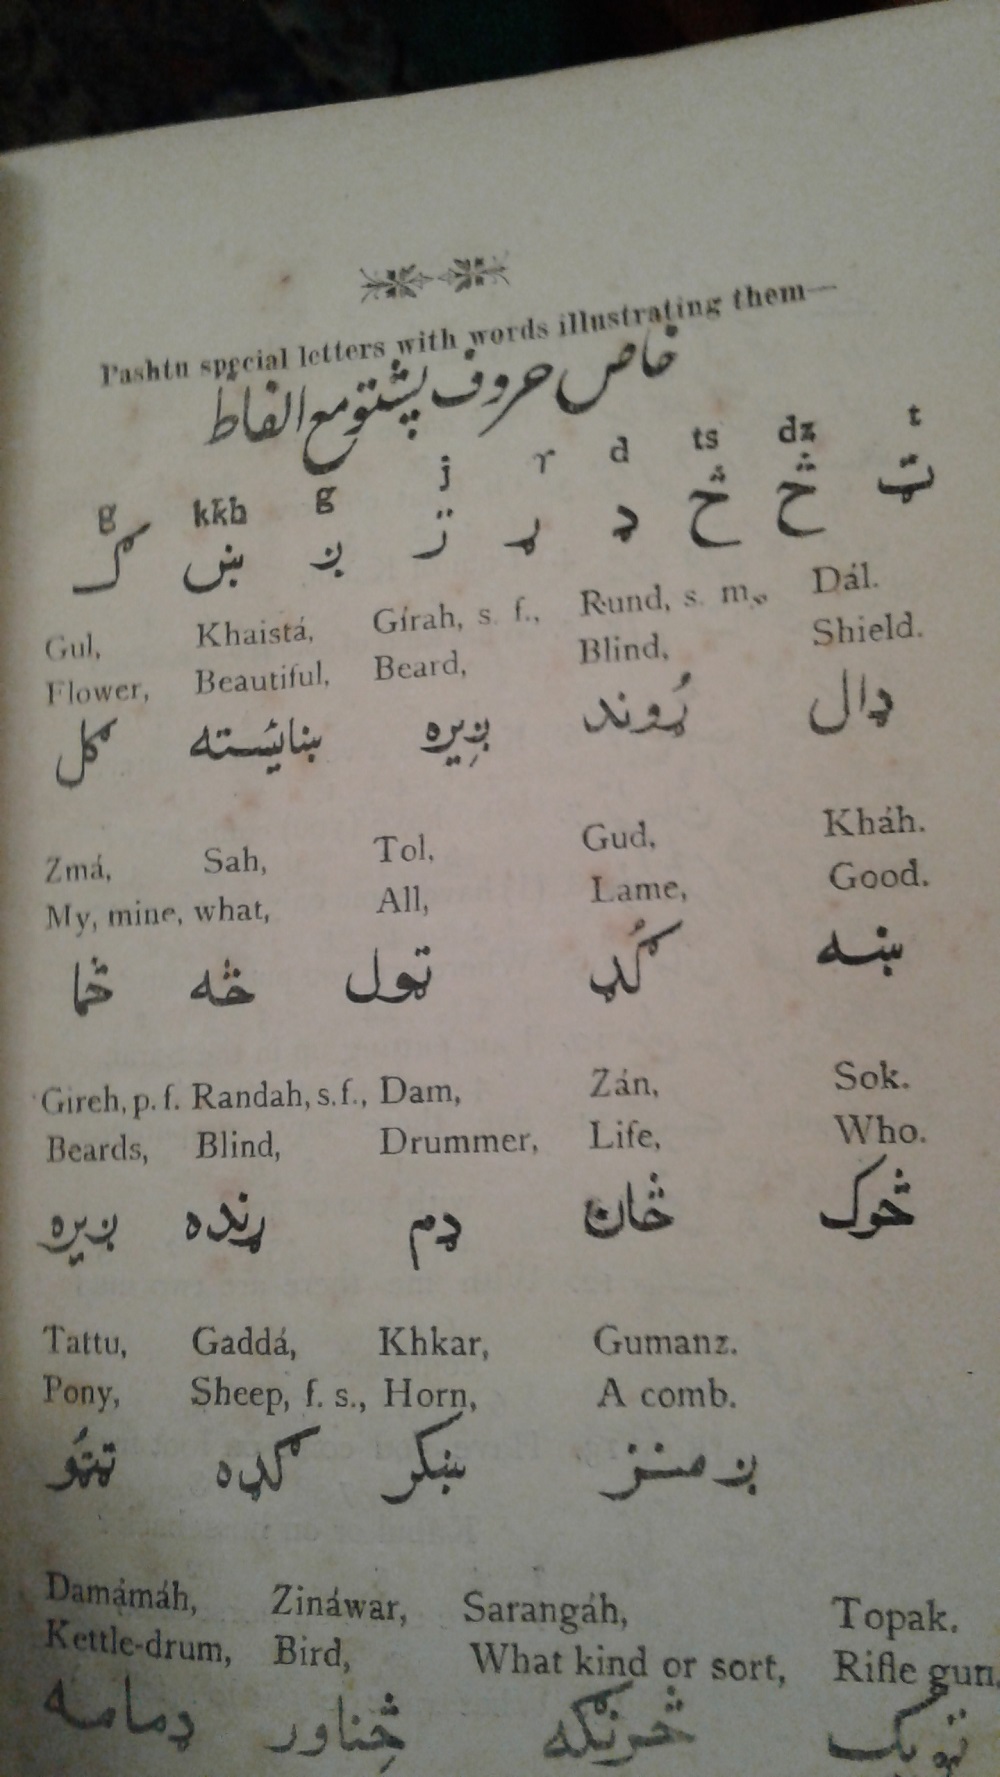 Pashtu special letters with words illustrating them—
خاص حروف پشتو مع الفاظ
g kkh g j r d ts dz t
ګ ښ ږ ژ ړ ډ څ ځ ټ
Gul, Khaistá, Gírah, s. f., Rund, s. m., Dál.
Flower, Beautiful, Beard, Blind, Shield.
ګل ښائسته ږِیره ړُوند ډال
Zmá, Sah, Tol, Gud, Kháh.
My, mine, what, All, Lame, Good.
څما څه ټول ګُډ ښه
Gireh, p. f. Randah, s. f., Dam, Zán, Sok.
Beards, Blind, Drummer, Life, Who.
ږیره ړنده ډم ځان څوک
Tattu, Gaddá, Khkar, Gumanz.
Pony, Sheep, f. s., Horn, A comb.
ټټُو ګډه ښکر ږمنز
Damámáh, Zináwar, Sarangáh, Topak.
Kettle-drum, Bird, What kind or sort, Rifle gun.
ډمامه ځِناور څرنګه ټوپک